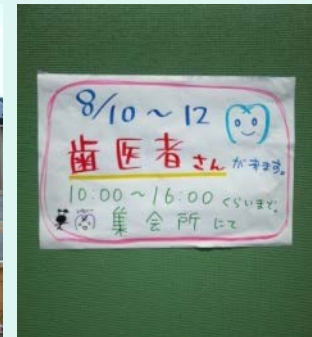 8/10～12
歯医者さんが来ます。
10:00～16:00くらいまで。
集会所にて